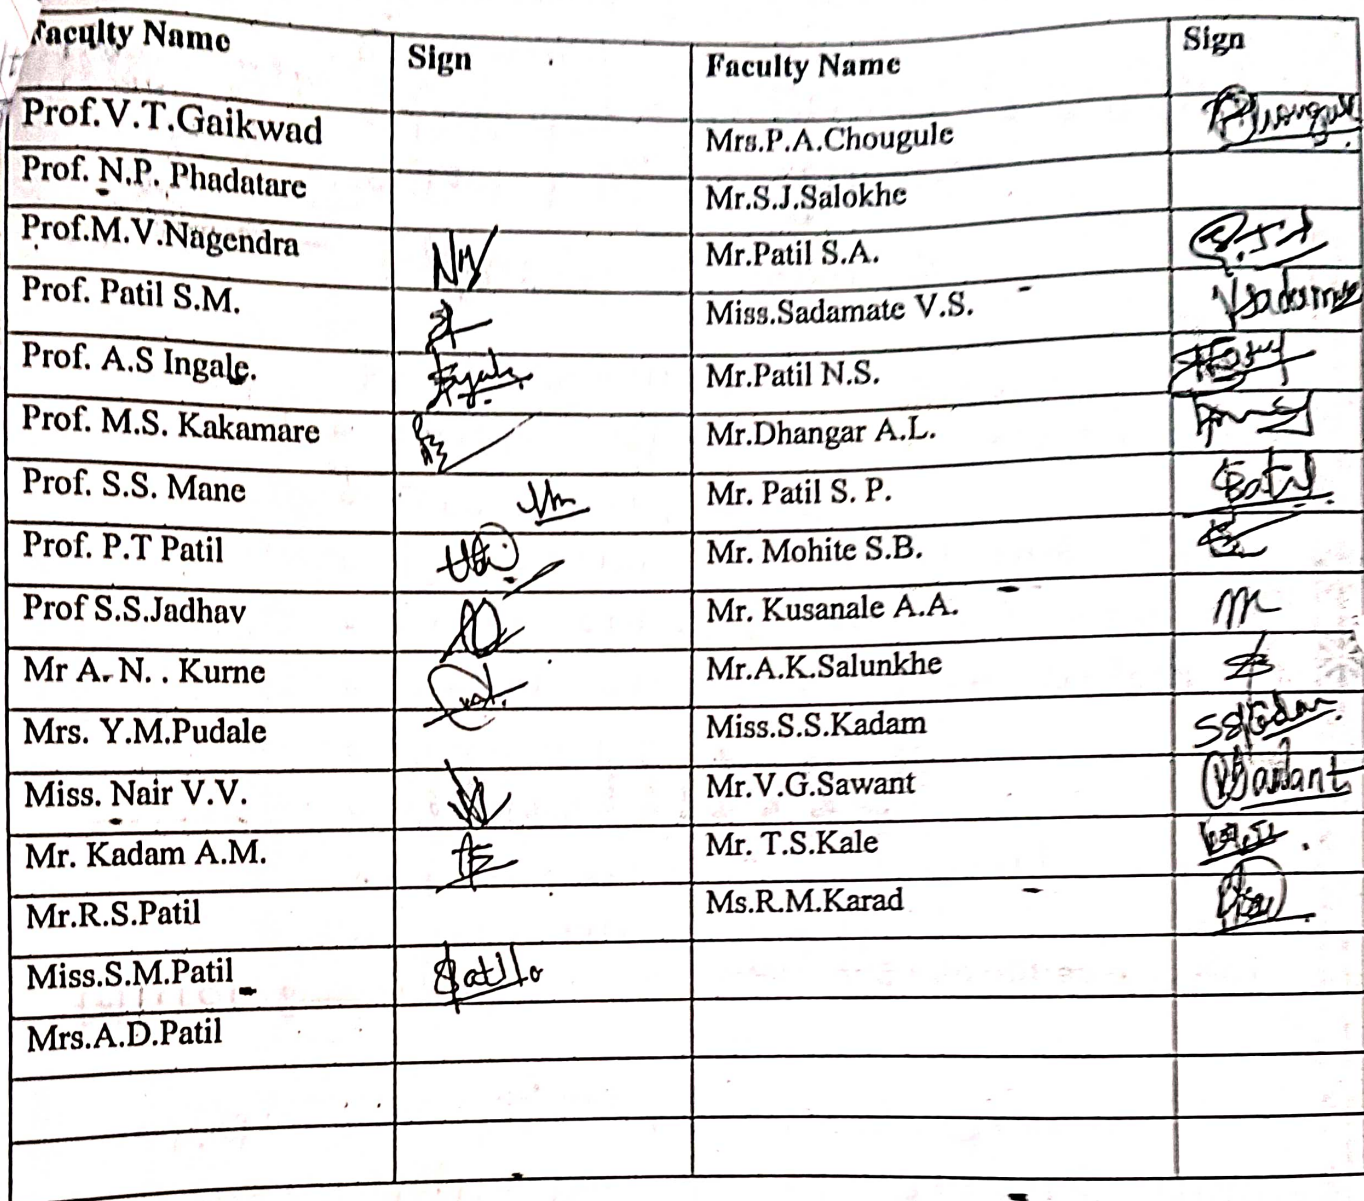 Faculty Name Sign Faculty Name Sign
Prof.V.T.Gaikwad Mrs.P.A.Chougule Chougule
Prof. N.P. Phadatare Mr.S.J.Salokhe
Prof.M.V.Nagendra Mr.Patil S.A.
Prof. Patil S.M. Miss.Sadamate V.S. VSadamate
Prof. A.S Ingale. Mr.Patil N.S.
Prof. M.S. Kakamare Mr.Dhangar A.L.
Prof. S.S. Mane Mr. Patil S. P. SPatil
Prof. P.T Patil Mr. Mohite S.B.
Prof S.S.Jadhav Mr. Kusanale A.A.
Mr A. N. . Kurne Mr.A.K.Salunkhe
Mrs. Y.M.Pudale Miss.S.S.Kadam SSKadam
Miss. Nair V.V. Mr.V.G.Sawant VSawant
Mr. Kadam A.M. Mr. T.S.Kale
Mr.R.S.Patil Ms.R.M.Karad
Miss.S.M.Patil
Mrs.A.D.Patil